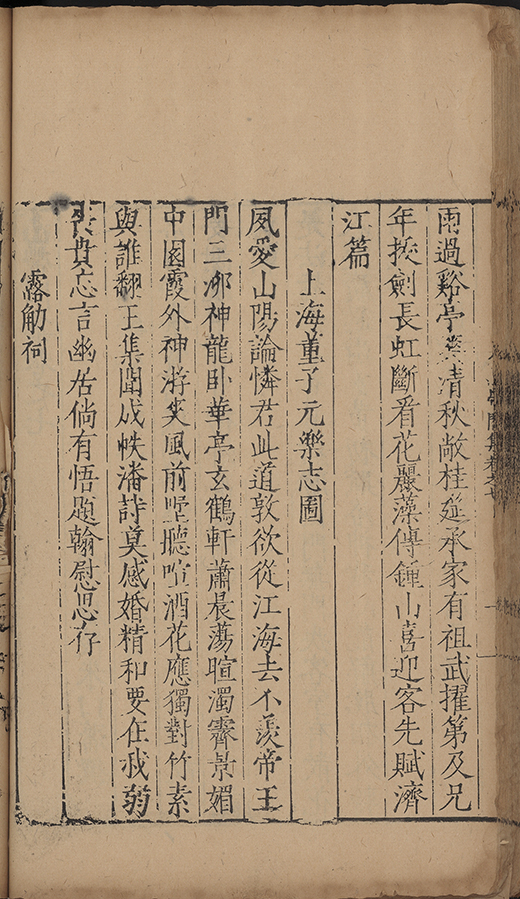 雨過谿亭業清秋敞桂筵承家有祖武擢第及兄
年掞劍長虹斷看花麗藻傳鍾山喜迎客先賦濟
江篇
上海董子元樂志圖
夙愛山陽論憐君此道敦欲從江海去不羨帝王
門三泖神龍卧華亭玄鶴軒蕭晨蕩暄濁霽景媚
中園霞外神游奐風前墅聽喧酒花應獨對竹素
與誰翻王集聞成帙潘詩莫感婚精和要在我窮
貴忘言幽居倘有悟題翰慰思存
露觔祠